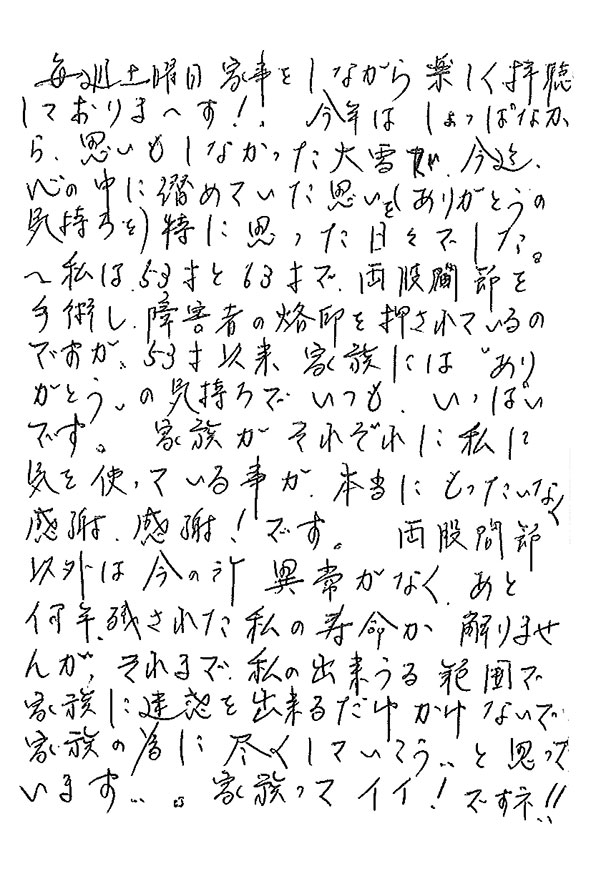 毎週土曜日 家事をしながら 楽しく拝聴
しておりま〜す!. 今年は しょっぱなか
ら、思いもしなかった大雪が、今迄、
心の中に潜めていた思いを(ありがとうの
気持ちを)特に思った日々でした。
〜私は、53才と63才で、両股関節を
手術し、障害者の烙印を押されているの
ですが、53才以来、家族には "あり
がとう〟の気持ちで いつも、いっぱい
です。 家族が それぞれに 私に
気を使っている事が、本当に もったいなく
感謝、感謝!です。 両股関節
以外は 今の所 異常がなく、あと
何年、残された私の寿命か 解りませ
んが、それまで、私の出来うる 範囲で
家族に迷惑を出来るだけ かけないで
家族の為に 尽くしていこう‥と思って
います…。 家族って イイ! ですネ!!